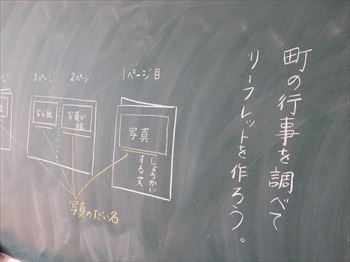 町の行事を調べて
リーフレットを作ろう。
1ページ目
写真
しょうかい
する文
2ページ
写真か
絵
3ページ
写真のだい名